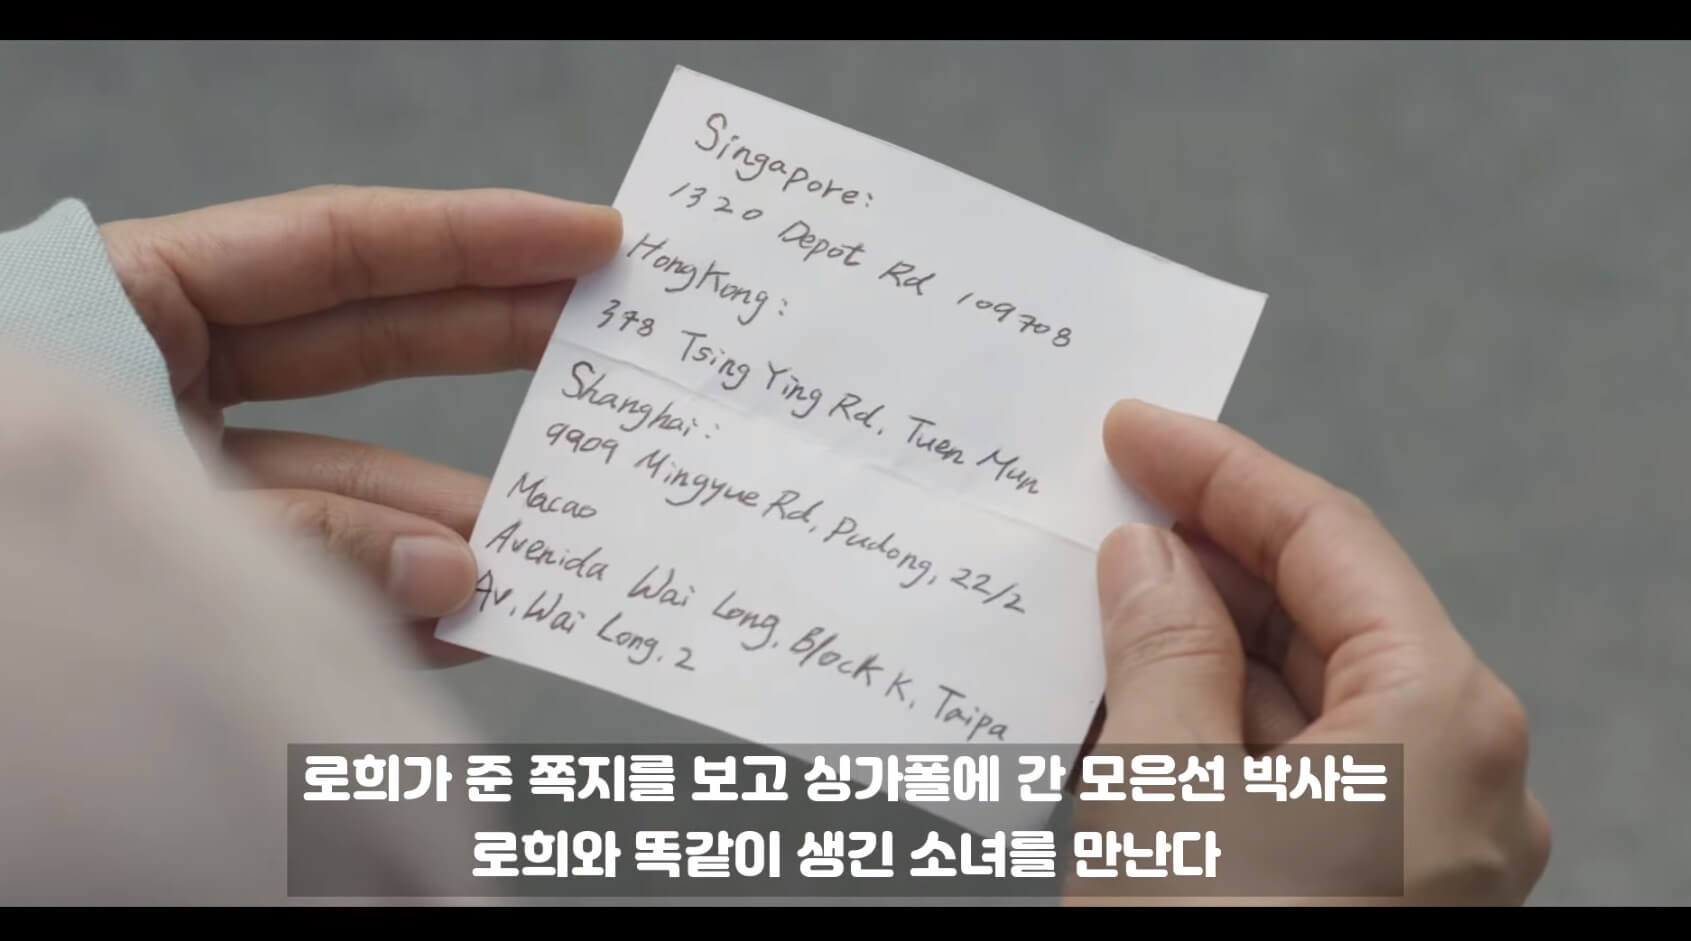 Singapore:
1320 Depot Rd 109708
HongKong:
378 Tsing Ying Rd, Tuen Mun
Shanghai:
9909 Mingyue Rd, Pudong, 22/2
Macao
Avenida Wai Long, Block K, Taipa
Av, Wai Long, 2
로희가 준 쪽지를 보고 싱가폴에 간 모은선 박사는
로희와 똑같이 생긴 소녀를 만난다